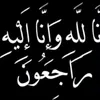 نَّا لله وَإِنَّا إِلَيْهِ
رَاجَعُونَ